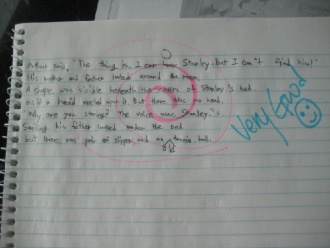 Arthur said, "The thing is, I can hear Stanley, But I can't find him!"
His mother and father looked around the room.
A shape was visible beneath the covers of Stanley's bed
as if a head rested on it. But there was no head.
Why are you staring? The voice was Stanley's
Smiling, his father looked under the bed
but there was pair of slipper and a tennis ball.
Very Good